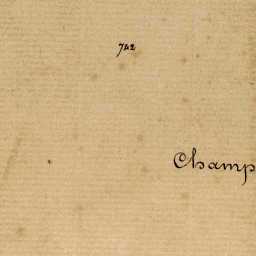 742
Champ